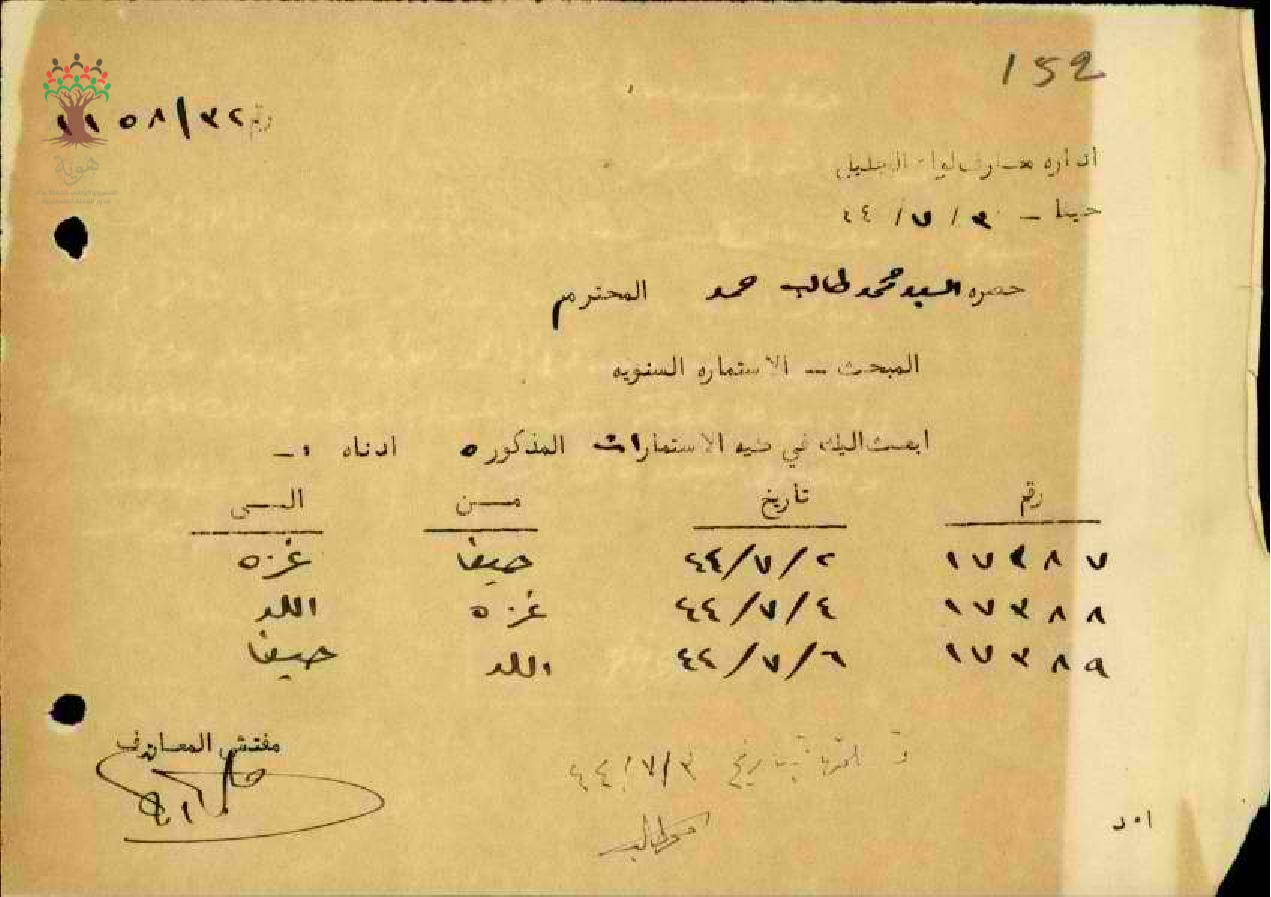 152
رقم ١١٥٨/٣٢
اداره معارف لواء الجليل
حيفا – ٣/ ٧/ ٤٤
هوية
حضره السيد محمد طالب حمد المحترم
المبحث – الاستماره السنويه
ابعث اليك في طيه الاستمارات المذكوره ادناه :-
رقم تاريخ مــن الــى
١٧٣٨٧ ٤٤/٧/٢ حيفا غزه
١٧٣٨٨ ٤٤/٧/٤ غزه اللد
١٧٣٨٩ ٤٤/٧/٦ اللد حيفا
مفتش المعارف
بتاريخ ٤٤/٧/٣